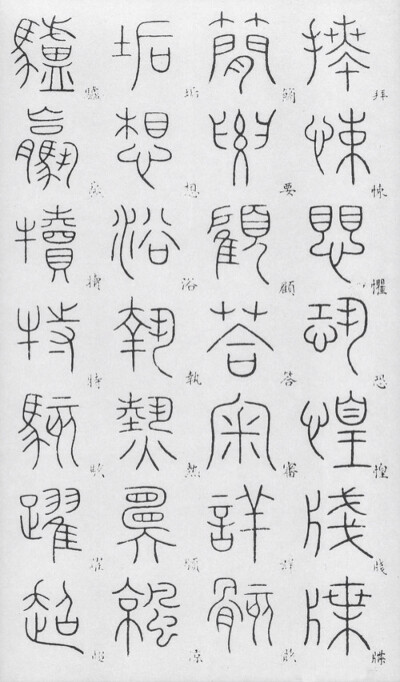 拜悚懼恐惶牋牒
簡要顧答審詳骸
垢想浴執熱願涼
驢騾犢特駭躍超